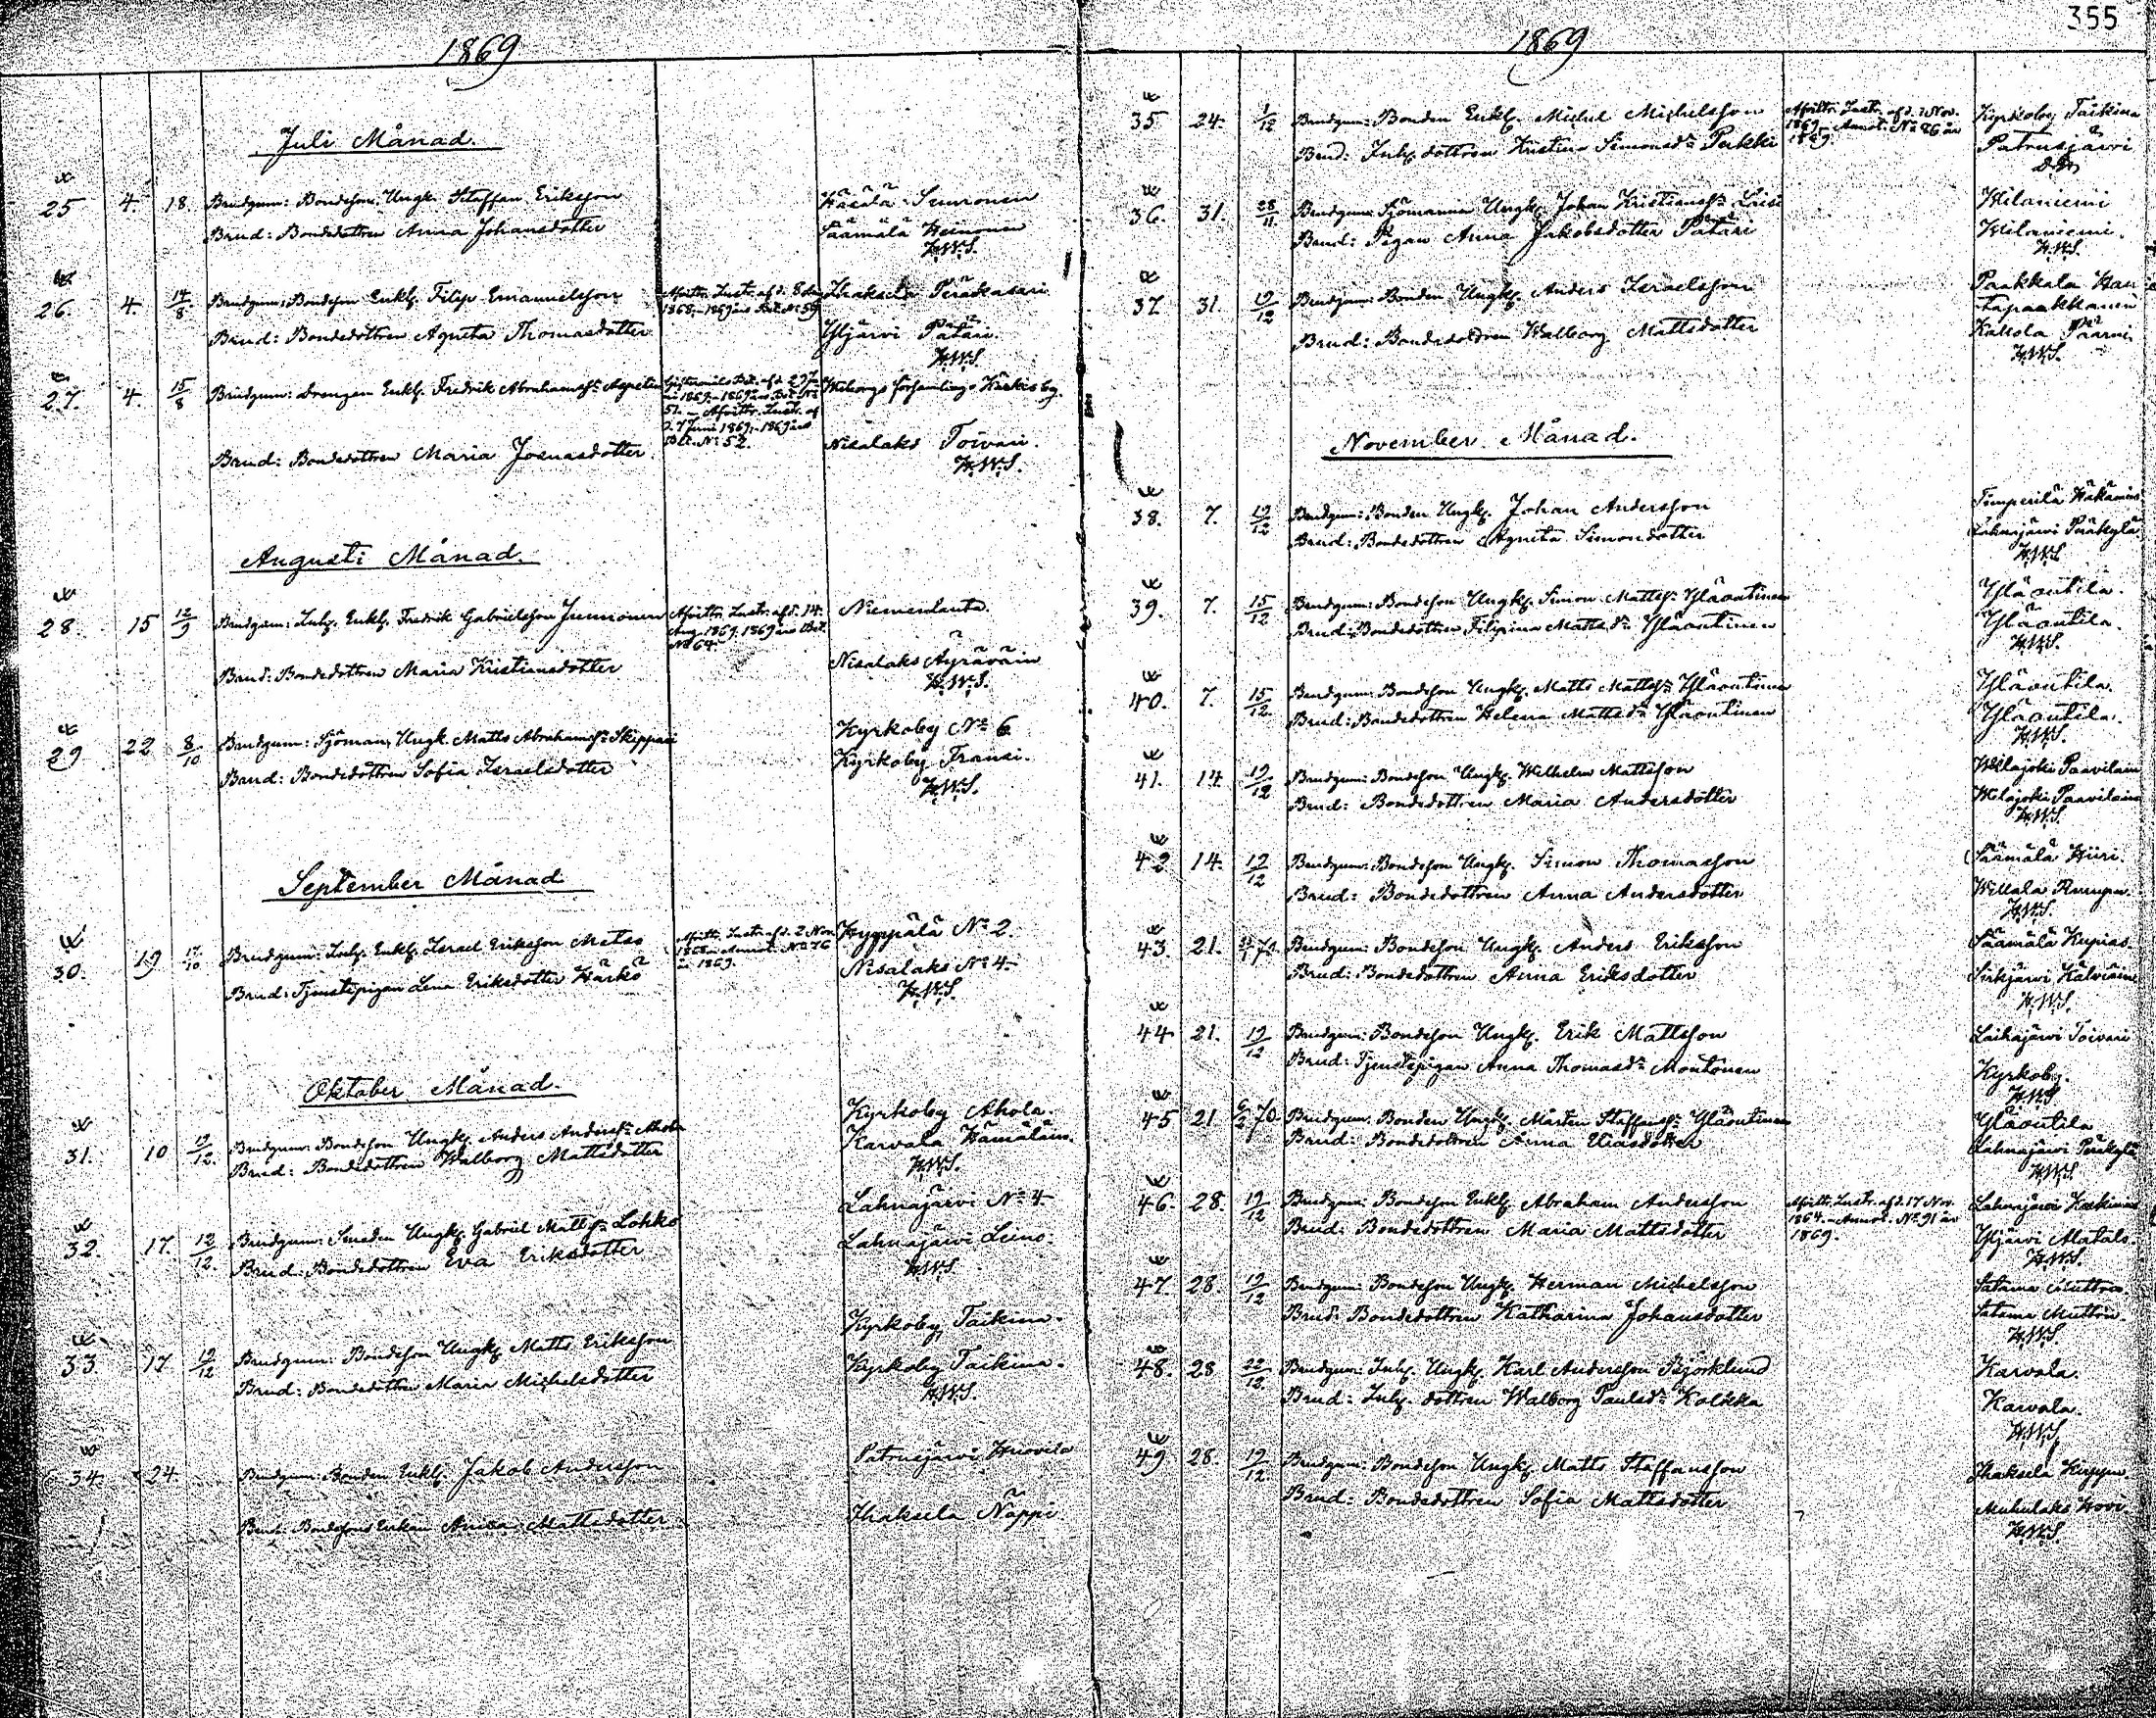 355
1869
Juli Månad.
25 4. 18. Brudgum: Bondeson Ungk. Staffan Eriksson
Brud: Bondedottren Anna Johansdotter Säämälä Heinonen
H.W.S.
26. 4. 14/8 Brudgum: Bondeson Enkl. Filip Emanuelsson Ihaksela
Brud: Bondedottren Agneta Thomasdotter Yljärvi Pätäri.
H.W.S.
27. 4. 15/8 Brudgum: Drengen Enkl. Fredrik Wiborgs församlings
Brud: Bondedottren Maria Josuasdotter Nisalaks Toivari.
H.W.S.
Augusti Månad.
28. 15 12/9 Brudgum: Inhs. Enkl. Fredrik Gabrielsson Junnonen Afvittr. Instr. af d. 14 Niemenlauta.
Aug. 1869. 1869 års Bil.
No 64.
Brud: Bondedottren Maria Kristiansdotter Nisalaks Äyräväin
H.W.S.
29 22 8/10 Brudgum: Sjöman, Ungk. Matts Abrahamss: Skippari Kyrkoby No 6
Brud: Bondedottren Sofia Israelsdotter Kyrkoby Fransi.
H.W.S.
September Månad
30. 19 17/10 Brudgum: Inhs. Enkl. Israel Eriksson Metso Afvittr. Instr. af d. 2 Nov. Kyppälä No 2.
1868. Annot. No 76
år 1869.
Brud: Tjenstepigan Lena Eriksdotter Härkö Nisalaks No 4.
H.W.S.
Oktober Månad.
31. 10 19/12. Brudgum: Bondeson Ungk. Anders Anderss: Ahola Kyrkoby Ahola.
Brud: Bondedottren Walborg Mattsdotter Karvala Hämäläin.
H.W.S.
32. 17. 12/12. Brudgum: Smeden Ungk. Gabriel Mattss: Lohko Lahnajärvi No 4
Brud: Bondedottren Eva Eriksdotter Lahnajärvi Leino.
H.W.S.
33 17. 19/12 Brudgum: Bondeson Ungk. Matts Eriksson Kyrkoby Taikina.
Brud: Bondedottren Maria Michelsdotter Kyrkoby Taikina.
H.W.S.
34. 24. Brudgum: Bonden Enkl. Jakob Andersson Patrusjärvi Huovila
Brud: Bondesons Enkan Anna Mattsdotter Ihaksela Näppi
1869
35 24. 1/12 Brudgum: Bonden Enkl. Michel Michelsson Afvittr. Instr. af d. 1 Nov. Kyrkoby Taikina
1869. Annot. No 86 år
1869.
Brud: Inhs. dottren Kristina Simonsd: Pukki Patrusjärvi
36. 31. 28/11. Brudgum: Sjömannen Ungk. Johan Kristianss: Wilaniemi
Brud: Pigan Anna Jakobsdotter Pätäri Wilaniemi.
H.W.S.
37. 31. 19/12 Brudgum: Bonden Ungk. Anders Israelsson Paakkala
Brud: Bondedottren Walborg Mattsdotter Kaltola
H.W.S.
November Månad.
38. 7. 19/12 Brudgum: Bonden Ungk. Johan Andersson Timperilä
Brud: Bondedottren Agneta Simonsdotter Lahnajärvi Peräkylä
H.W.S.
39. 7. 15/12 Brudgum: Bondeson Ungk. Simon Mattss: Yläoutinen Yläoutila.
Brud: Bondedottren Filipina Mattsd: Yläoutinen Yläoutila.
H.W.S.
40. 7. 15/12. Brudgum: Bondeson Ungk. Matts Mattss: Yläoutinen Yläoutila.
Brud: Bondedottren Helena Mattsd: Yläoutinen Yläoutila.
H.W.S.
41. 14. 19/12 Brudgum: Bondeson Ungk. Wilhelm Mattsson Wilajoki Paavilain
Brud: Bondedottren Maria Andersdotter Wilajoki Paavilain
H.W.S.
42 14. 19/12 Brudgum: Bondeson Ungk. Simon Thomasson Säämälä Hiiri.
Brud: Bondedottren Anna Andersdotter Willala
H.W.S.
43. 21. Brudgum: Bondeson Ungk. Anders Eriksson Säämälä Kupias.
Brud: Bondedottren Anna Eriksdotter Sirkjärvi Kälviäin
H.W.S.
44 21. 19/12 Brudgum: Bondeson Ungk. Erik Mattsson Laihajärvi Toivari
Brud: Tjenstepigan Anna Thomasd: Montonen Kyrkoby.
H.W.S.
45 21 6/2 70 Brudgum: Bonden Ungk. Mårten Staffanss: Yläoutinen Yläoutila
Brud: Bondedottren Anna Eliasdotter Lahnajärvi Peräkylä
H.W.S.
46. 28. 19/12 Brudgum: Bondeson Enkl. Abraham Andersson Afvittr. Instr. af d. 17 Nov. Lahnajärvi
1864. Annot. No 91 år
1869.
Brud: Bondedottren Maria Mattsdotter Yljärvi Matals.
H.W.S.
47. 28. 19/12 Brudgum: Bondeson Ungk. Herman Michelsson Satama Muttron.
Brud: Bondedottren Katharina Johansdotter Satama Muttron.
H.W.S.
48. 28 22/12. Brudgum: Inhs. Ungk. Karl Andersson Björklund Karvala.
Brud: Inhs. dottren Walborg Paulsd: Kolkka Karvala.
H.W.S.
49 28. 19/12 Brudgum: Bondeson Ungk. Matts Staffansson Ihaksela
Brud: Bondedottren Sofia Mattsdotter Muhulaks Hovi
H.W.S.